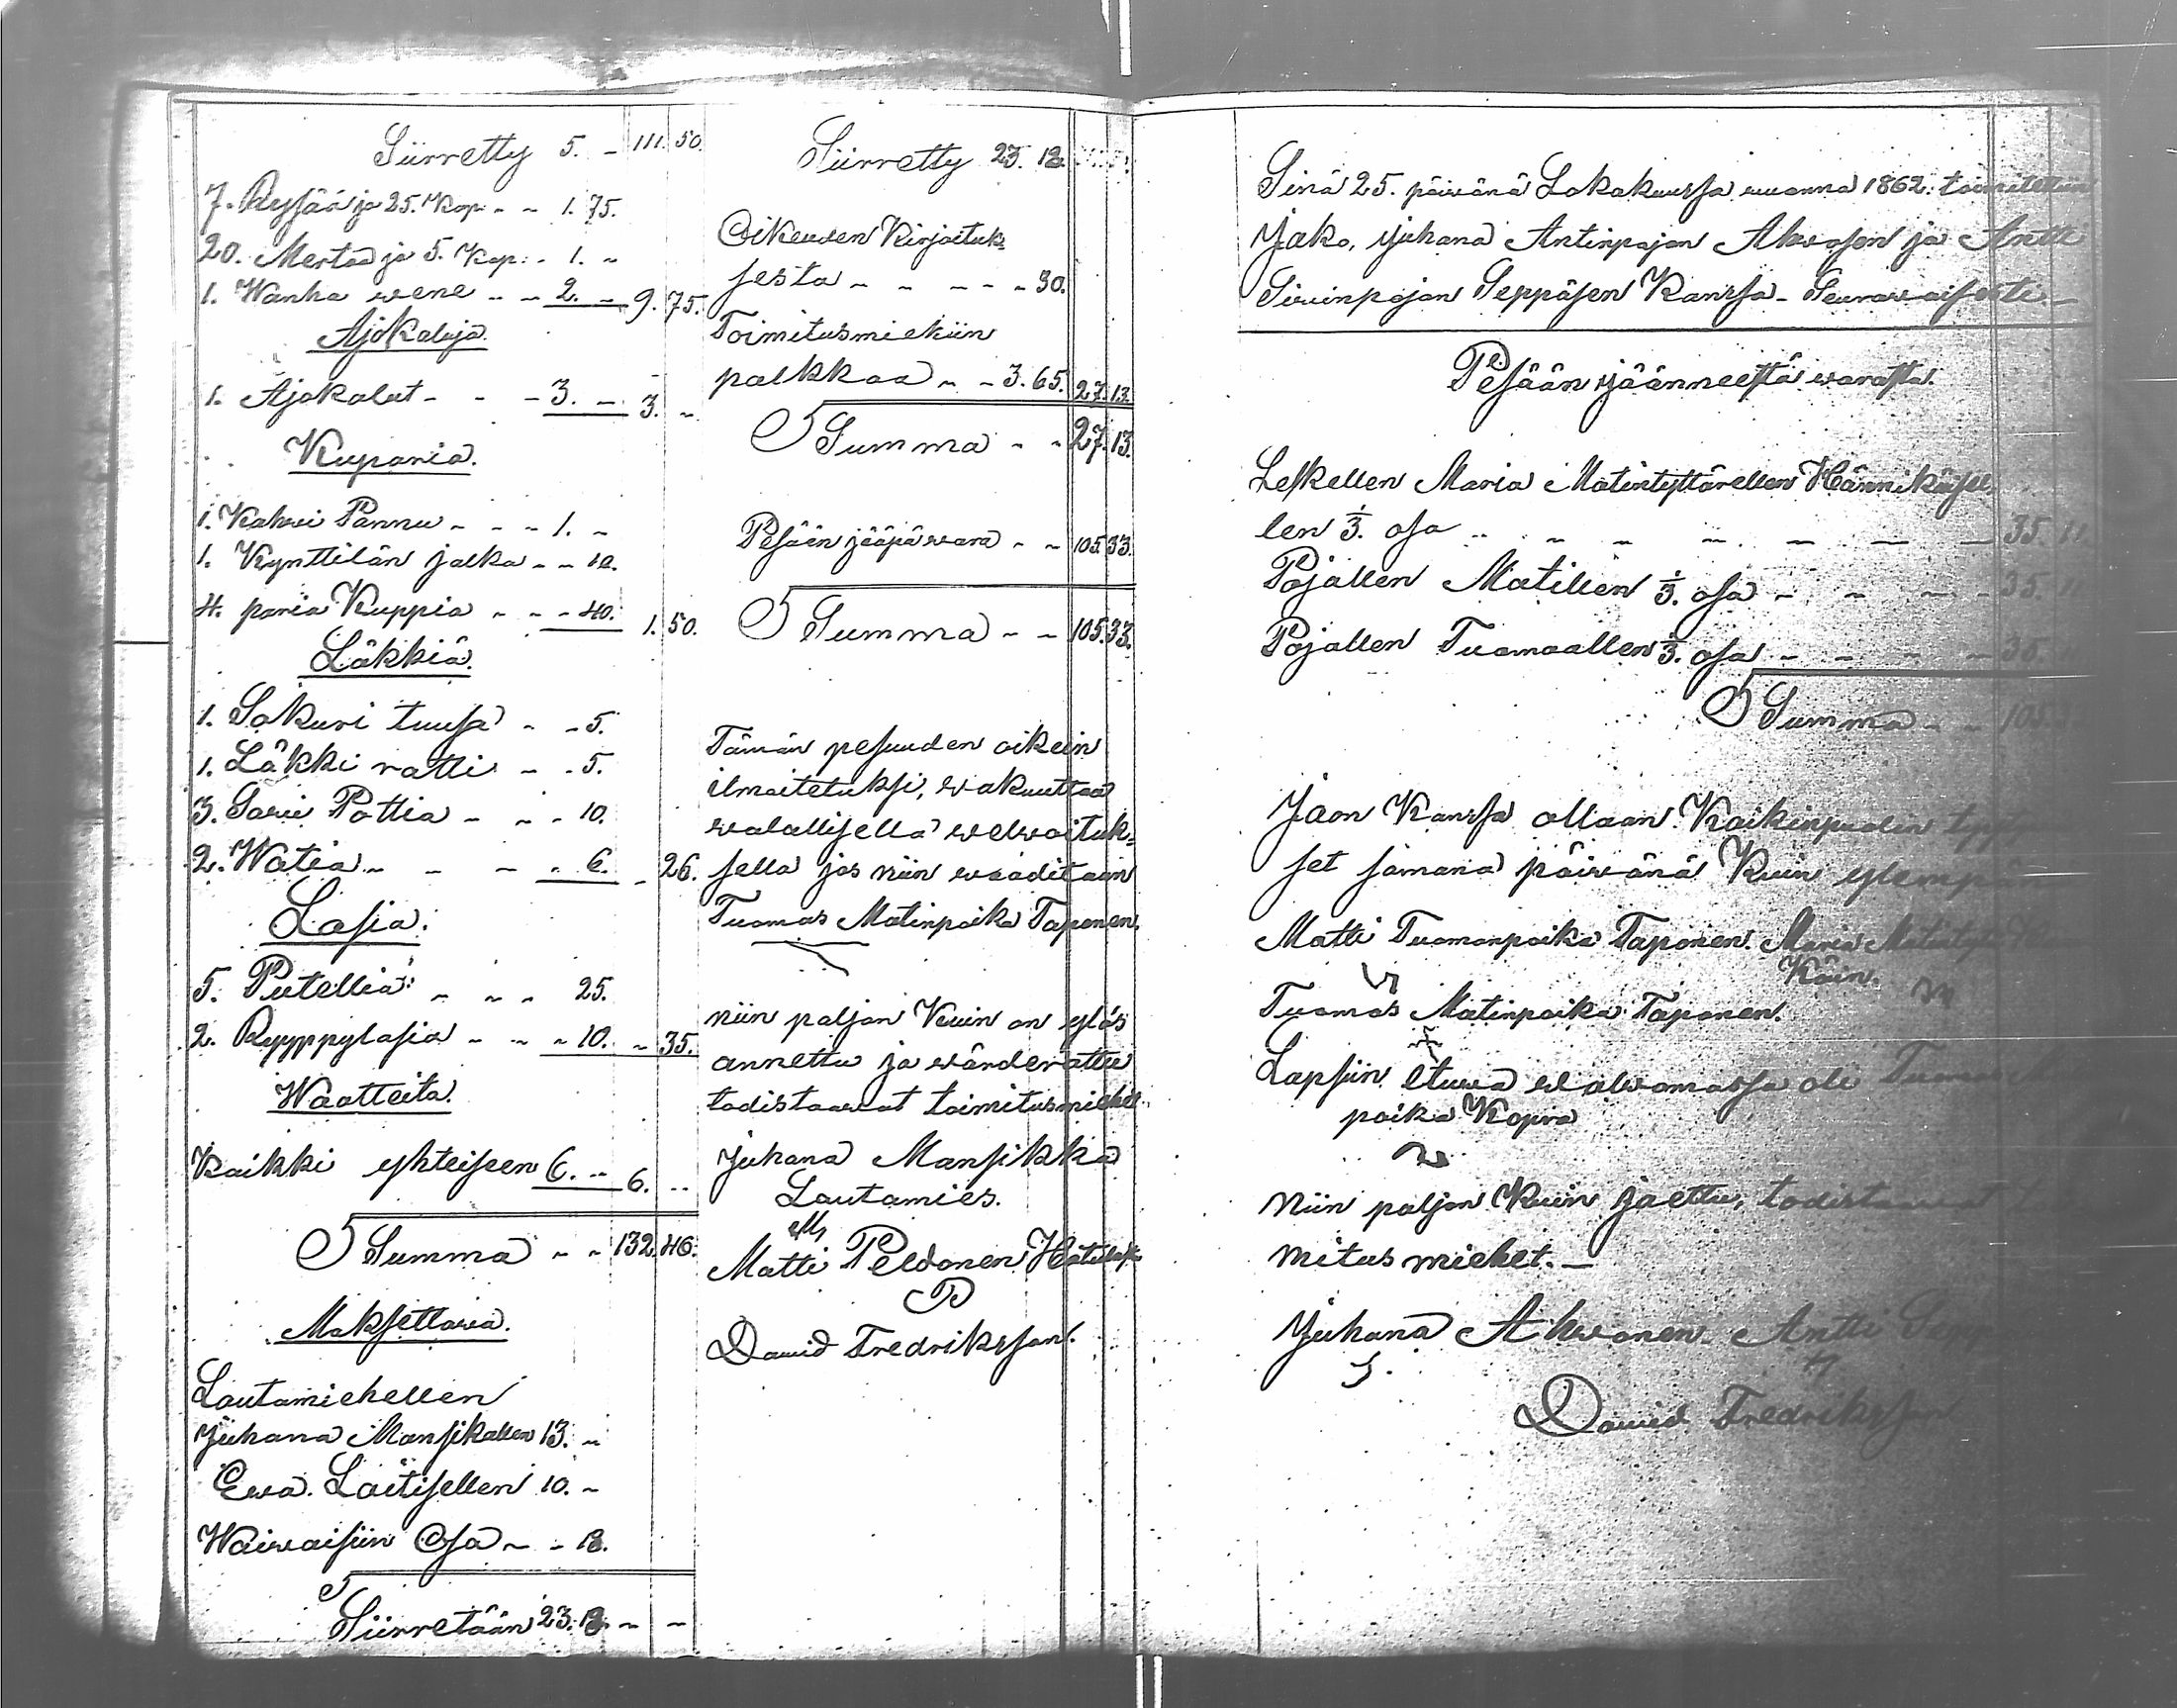 Siirretty 5. - 111. 50.
7. Rysää ja 25. Kop. - - 1. 75.
20. Mertaa ja 5. Kop. - 1. -
1. Wanha wene - - 2. - 9. 75.
Ajokaluja.
1. Ajokalut - - - 3. - 3. -
Kuparia.
1. Kahwi Pannu - - - 1. -
1. Kynttilän jalka - - 10.
4. paria Kuppia - - - 40. 1. 50.
Läkkiä.
1. Sokuri tuusa - - 5.
1. Läkki ratti - - 5.
3. Sawi Pottia - - - 10.
2. Watia - - - - 6. - 26.
Lasia.
5. Putellia - - - 25.
2. Ryyppylasia - - - 10. - 35.
Waatteita.
Kaikki yhteisen 6. - 6. -
Summa - - 132. 46.
Maksettawa.
Lautamiehellen
Juhana Mansikallen 13. -
Ewa Laitisellen 10. -
Waiwaisiin Osa - - 18.
Siirretään 23. 18. - -
Siirretty 23. 18.
Oikeuden Kirjoituk=
sesta - - - - - 30.
Toimitusmiehiin
palkkaa - - 3. 65. 27. 13.
Summa - - 27. 13.
Pesään jääpä wara - - 105. 33.
Summa - - 105. 33.
Tämän pesuuden oikein
ilmoitetuksi, wakuuttaa
walallisella welwoituk=
sella jos niin waaditaan
Tuomas Matinpoika Taponen.
niin paljon Kuin on ylös
annettu ja wärderattu
todistaawat toimitusmiehet.
Juhana Mansikka
Lautamies.
Matti Peldonen
P
Dawid Fredriksson.
Sinä 25. päiwänä Lokakuussa wuonna 1862. toimitettiin
Jako, Juhana Antinpojan Ahwosen ja Antti
Siminpojan Seppäsen Kanssa -
Pesään jäänneestä warasta.
Leskellen Maria Matintyttärellen Hännikäsel=
len 1/3. osa - - - - - - - 35. 11.
Pojallen Matillen 1/3. osa - - - - 35. 11
Pojallen Tuomaallen 1/3. osa - - - - 35. 11
Summa - - 105. 3
Jaon Kanssa ollaan Kaikinpuolin
set samana päiwänä Kuin
Matti Tuomanpoika Taponen. Maria
Käin.
Tuomas Matinpoika Taponen.
Lapsiin etuwa walwomassa oli
poika Kopra
Niin paljon Kuin jaettu, todistaawat
mitus miehet. -
Juhana Ahwonen. Antti
Dawid Fredriksson